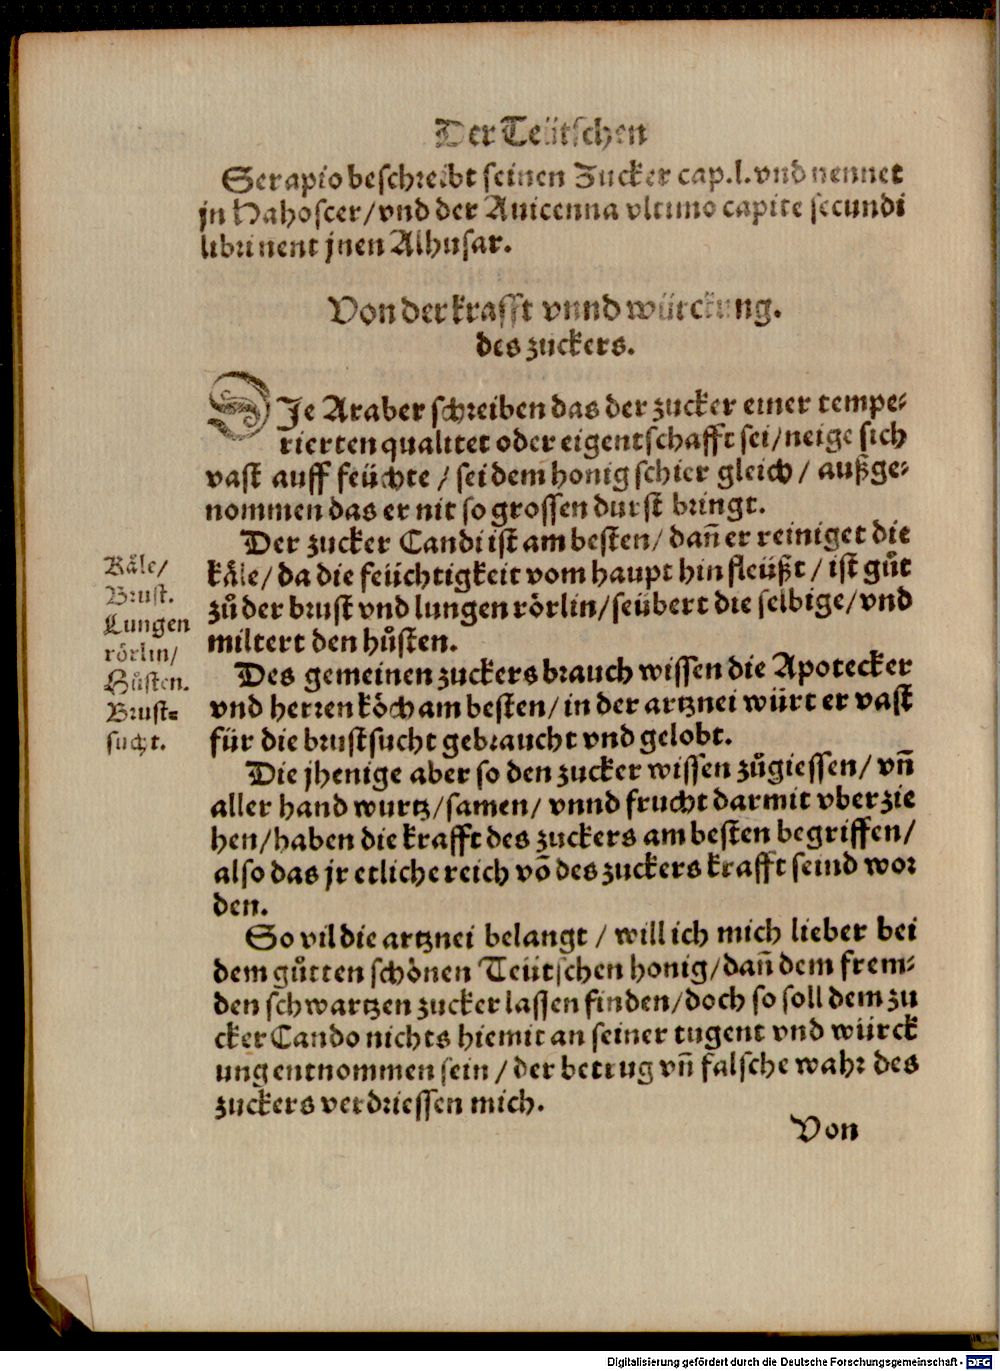 Der Teütschen
Serapio beschreibt seinen Zucker cap.l. vnd nennet
jn Hahoscer/vnd der Auicenna vltimo capite secundi
libri nent jnen Alhusar.
Von der krafft vnnd würckung.
des zuckers.
DIe Araber schreiben das der zucker einer tempe-
rierten qualitet oder eigentschafft sei/neige sich
vast auff feüchte / sei dem honig schier gleich / außge-
nommen das er nit so grossen durst bringt.
Der zucker Candi ist am besten/dañ er reiniget die
kåle/da die feüchtigkeit vom haupt hin fleüßt/ist gůt
zů der brust vnd lungen rörlin/seübert die selbige/vnd
miltert den hůsten.
Kåle/
Brust.
Lungen
rörlin/
Hůsten.
Brust-
sucht.
Des gemeinen zuckers brauch wissen die Apotecker
vnd herren köch am besten/in der artznei würt er vast
für die brustsucht gebraucht vnd gelobt.
Die jhenige aber so den zucker wissen zůgiessen/vñ
aller hand wurtz/samen/vnnd frucht darmit vberzie
hen/haben die krafft des zuckers am besten begriffen/
also das jr etliche reich võ des zuckers krafft seind wor
den.
So vil die artznei belangt / will ich mich lieber bei
dem gůtten schönen Teütschen honig/dañ dem frem-
den schwartzen zucker lassen finden/doch so soll dem zu
cker Cando nichts hiemit an seiner tugent vnd würck
ung entnommen sein/der betrug vñ falsche wahr des
zuckers verdriessen mich.
Von
Digitalisierung gefördert durch die Deutsche Forschungsgemeinschaft - DFG